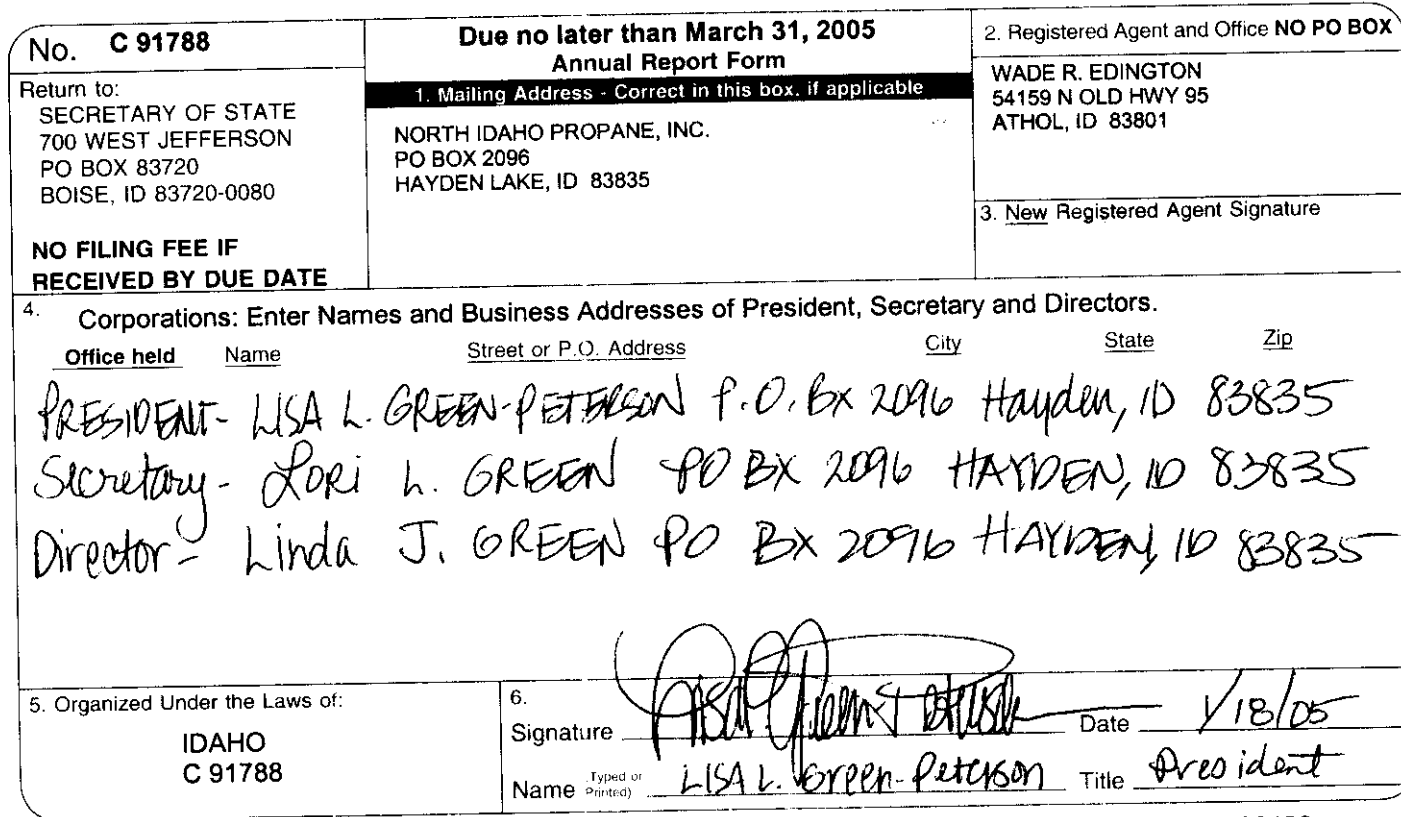 No. C 91788
Return to:
SECRETARY OF STATE
700 WEST JEFFERSON
PO BOX 83720
BOISE, ID 83720-0080
NO FILING FEE IF
RECEIVED BY DUE DATE
Due no later than March 31, 2005
Annual Report Form
1. Mailing Address - Correct in this box, if applicable
NORTH IDAHO PROPANE, INC.
PO BOX 2096
HAYDEN LAKE, ID 83835
2. Registered Agent and Office NO PO BOX
WADE R. EDINGTON
54159 N OLD HWY 95
ATHOL, ID 83801
3. New Registered Agent Signature
4. Corporations: Enter Names and Business Addresses of President, Secretary and Directors.
Office held Name Street or P.O. Address City State Zip
PRESIDENT- LISA L. GREEN-PETERSON P.O. BX 2096 Hayden, ID 83835
Secretary- LORI L. GREEN PO BX 2096 HAYDEN, ID 83835
Director- Linda J. GREEN PO BX 2096 HAYDEN, ID 83835
5. Organized Under the Laws of:
IDAHO
C 91788
6.
Signature Lisa L. Green-Peterson Date 1/18/05
Name (Typed or Printed) LISA L. Green-Peterson Title President